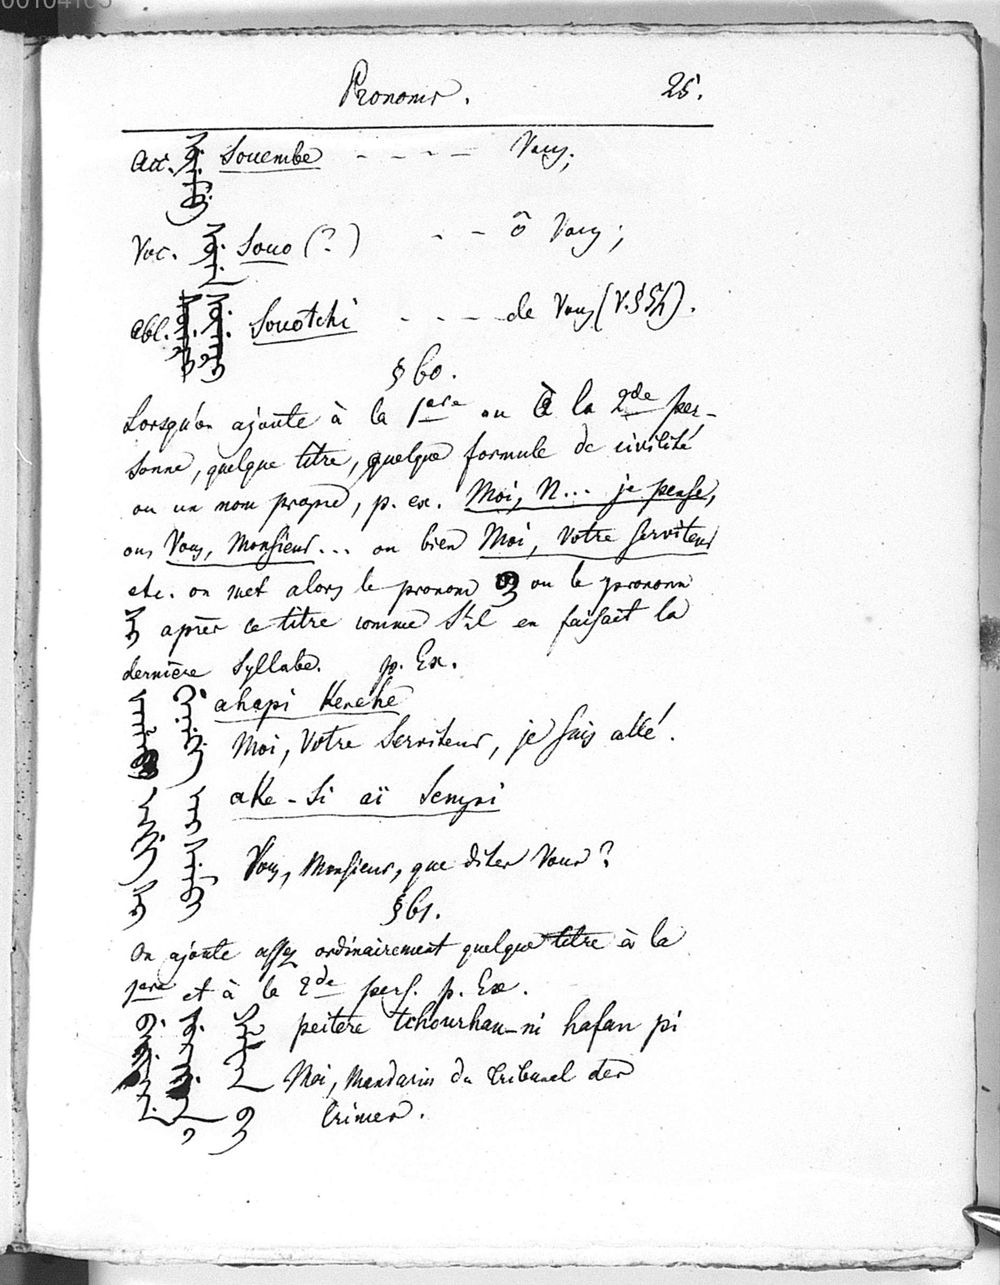 Pronoms. 25.
Acc. Souembe - - - - Vous;
Voc. Souo (?) - - ô Vous;
Abl. Souotchi - - - - de Vous (V. § 54).
§ 60.
Lorsqu'on ajoute à la 1ere ou à la 2de per-
sonne, quelque titre, quelque formule de civilité
ou un nom propre, p. ex. Moi, N... je pense,
ou, Vous, Monsieur... ou bien Moi, votre serviteur
etc. on met alors le pronom ou le pronom
après ce titre comme s'il en faisait la
dernière syllabe. p. Ex.
ahapi Kenehe
Moi, Votre Serviteur, je suis allé.
aKe-Si aï Sempi
Vous, Monsieur, que dites Vous?
§ 61.
On ajoute assez ordinairement quelque titre à la
1ere et à la 2de pers. p. Ex.
peitere tchourhan-ni hafan pi
Moi, Mandarin du tribunal des
Crimes.